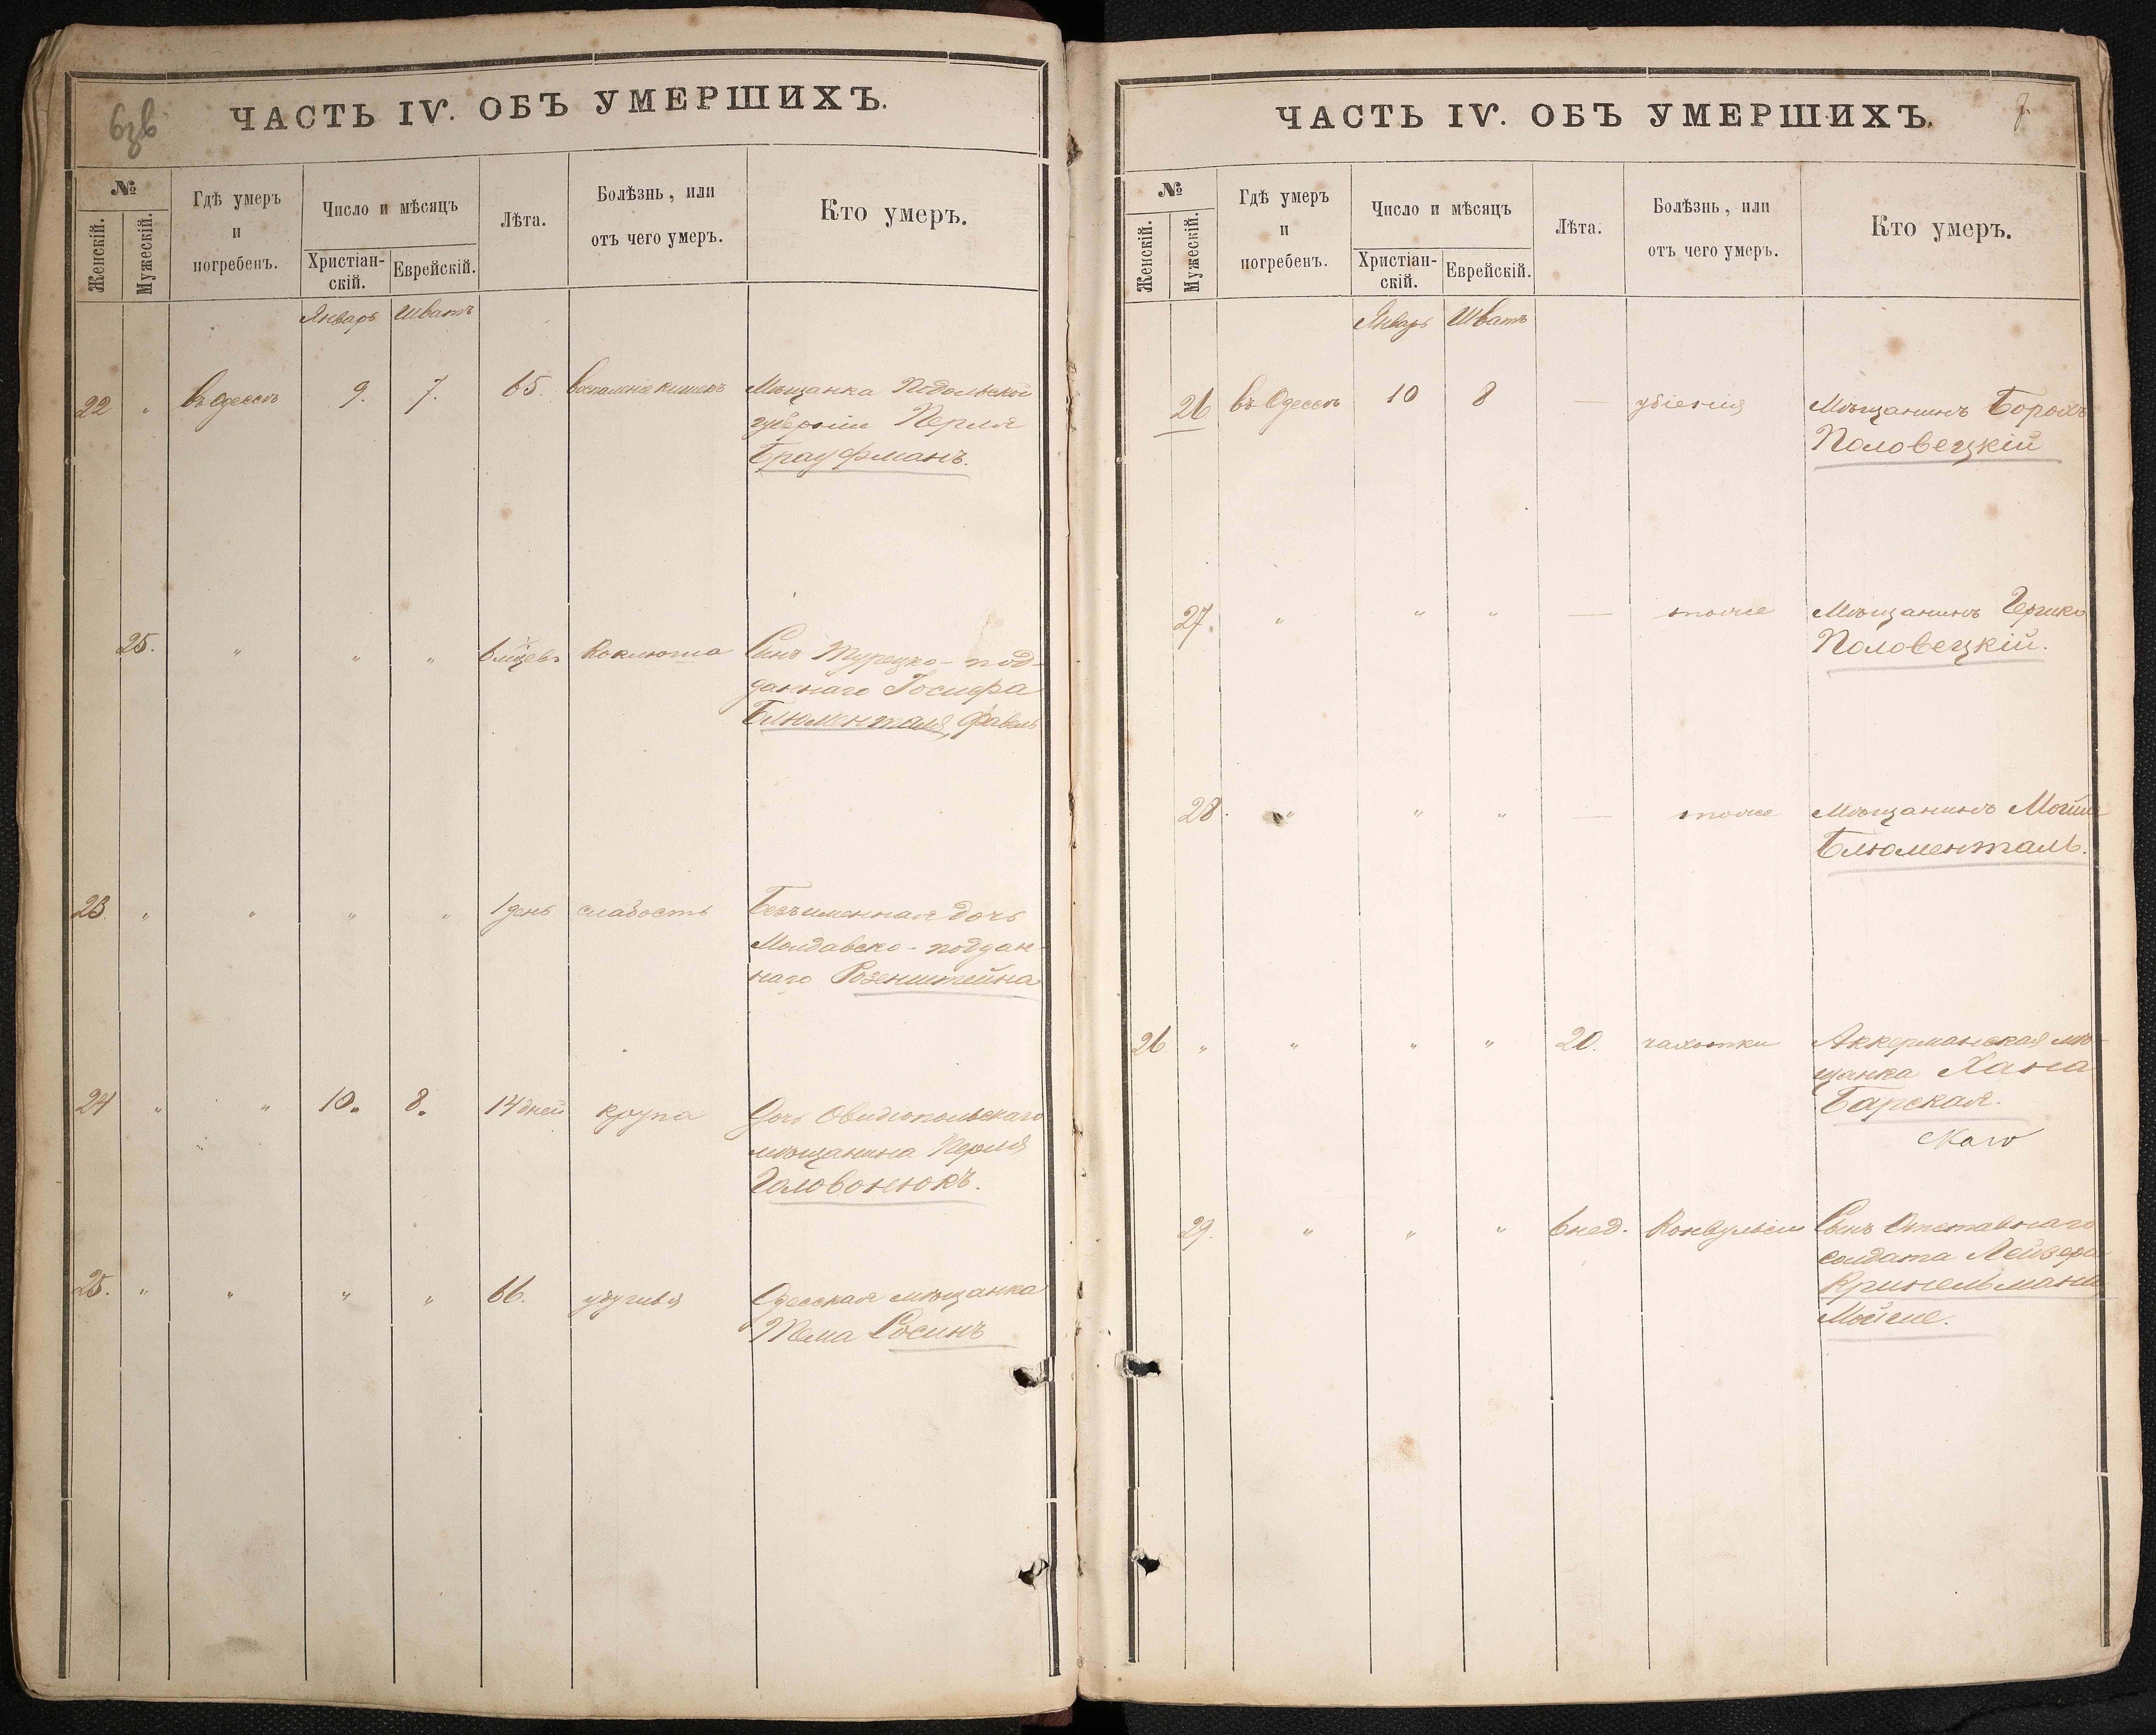 6зв
ЧАСТЬ IV. ОБЪ УМЕРШИХЪ.
№
Женскій.
Мужескій.
Гдѣ умеръ
и
погребенъ.
Число и мѣсяцъ
Христіан-
скій.
Еврейскій.
Лѣта.
Болѣзнь, или
отъ чего умеръ.
Кто умеръ.
Январь Шватъ
22 " въ Одессѣ 9. 7. 65. воспаленіе кишекъ Мѣщанка Подольской
губерніи Перля
Брауфманъ.
25. " " " 6 мѣцевъ Коклюша Сынъ Турецко-под-
даннаго Іосифа
Блюменталя,
23. " " " " 1 день слабость Безъименная дочь
Молдавско-поддан-
наго Розенштейна
24 " " 10. 8. 14 дней крупа Дочь Овидіопольскаго
мѣщанина Перля
Головонюкъ.
25. " " " " 66. удушья Одесская мѣщанка
Тема Сосинъ
ЧАСТЬ IV. ОБЪ УМЕРШИХЪ.
7.
№
Женскій.
Мужескій.
Гдѣ умеръ
и
погребенъ.
Число и мѣсяцъ
Христіан-
скій.
Еврейскій.
Лѣта.
Болѣзнь, или
отъ чего умеръ.
Кто умеръ.
Январь Шватъ
26 въ Одессѣ 10 8 — убіенія Мѣщанинъ Борохъ
Половецкій
27. " " " — тоже Мѣщанинъ Гершко
Половецкій.
28. " " " — тоже Мѣщанинъ Мойше
Блюменталь.
26. " " " " 20. чахотки Аккерманская мѣ-
щанка Хана
Барская.
29. " " " 6 нед. Конвульсіи Сынъ Отставнаго
солдата Лейзера
Кринельмана,
Мойше.